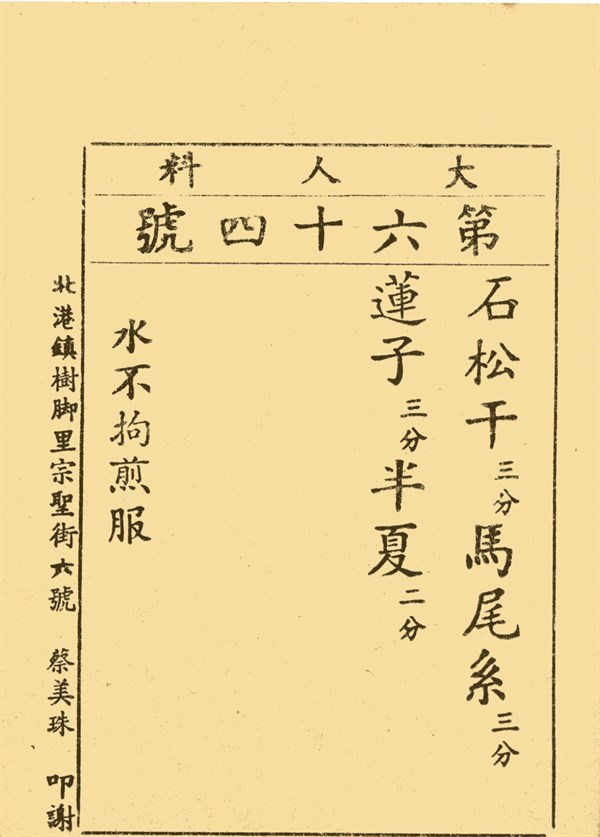 大人料
第六十四號
石松干三分馬尾糸三分
蓮子三分半夏二分
水不拘煎服
北港鎮樹脚里宗聖街六號 蔡美珠 叩謝